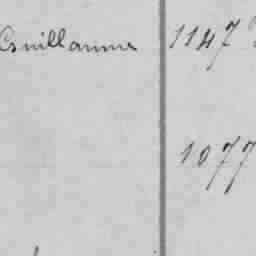 Guillaume 1147
1077